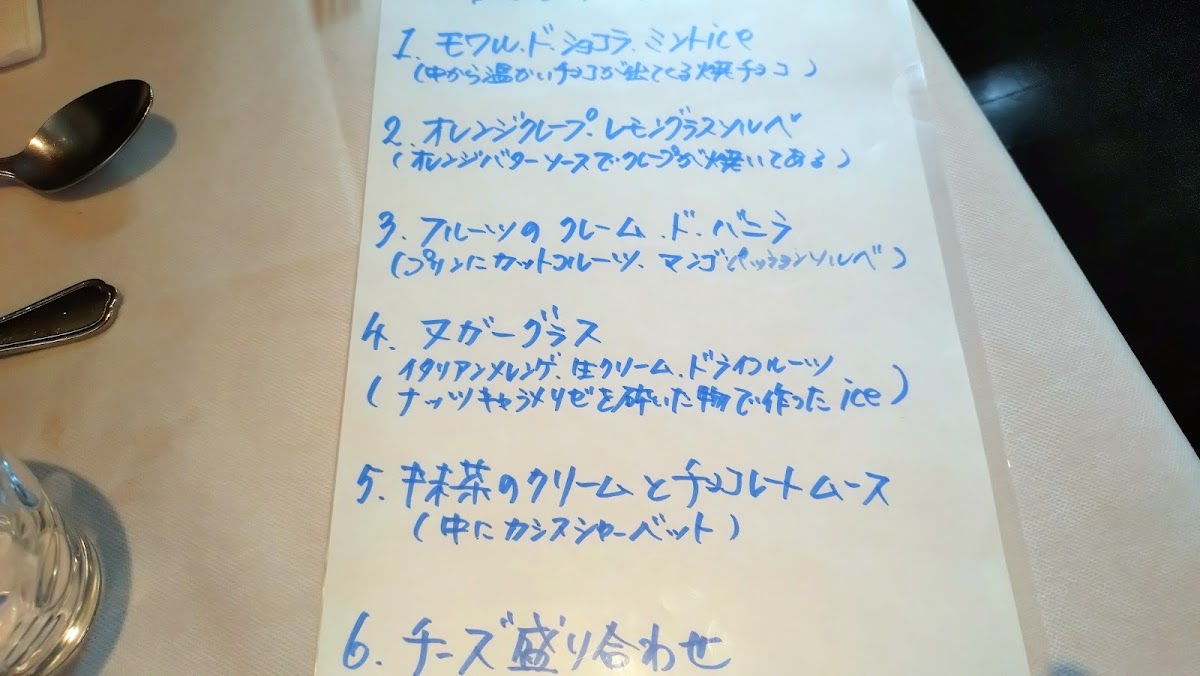 1. モワル.ド.ショコラ.ミントice
(中から温かいチョコが出てくる焼チョコ)
2. オレンジクレープ.レモングラスソルベ
(オレンジバターソースで.クレープが焼いてある)
3. フルーツの クレーム.ド.バニラ
(プリンにカットフルーツ、マンゴパッションソルベ)
4. ヌガーグラス
イタリアンメレンゲ、生クリーム、ドライフルーツ
(ナッツキャラメリゼを砕いた物で作ったice)
5. 抹茶のクリームとチョコレートムース
(中にカシスシャーベット)
6. チーズ盛り合わせ